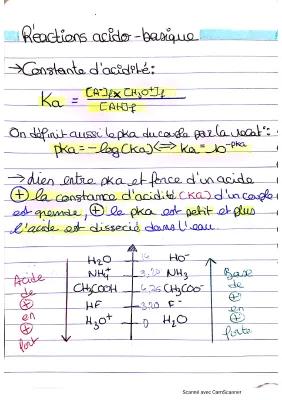 Réactions acido-basique
→Constante d'acidité:
Ka = [A-]f x [H3O+]f / [AH]f
On définit aussi le pka du couple par la relat°:
pka=-log(Ka) <=> Ka=10^-pka
→ Lien entre pka et force d'un acide
⊕ la constance d'acidité (Ka) d'un couple
est grande, ⊕ le pka est petit et plus
l'acide est dissocié dans l'eau.
H2O 14 HO-
NH4+ NH3
CH3COOH CH3COO-
HF 3,20 F-
H3O+ 0 H2O
Acide de ⊕ en ⊕ fort
Base de ⊕ en ⊕ forte
Scanné avec CamScanner